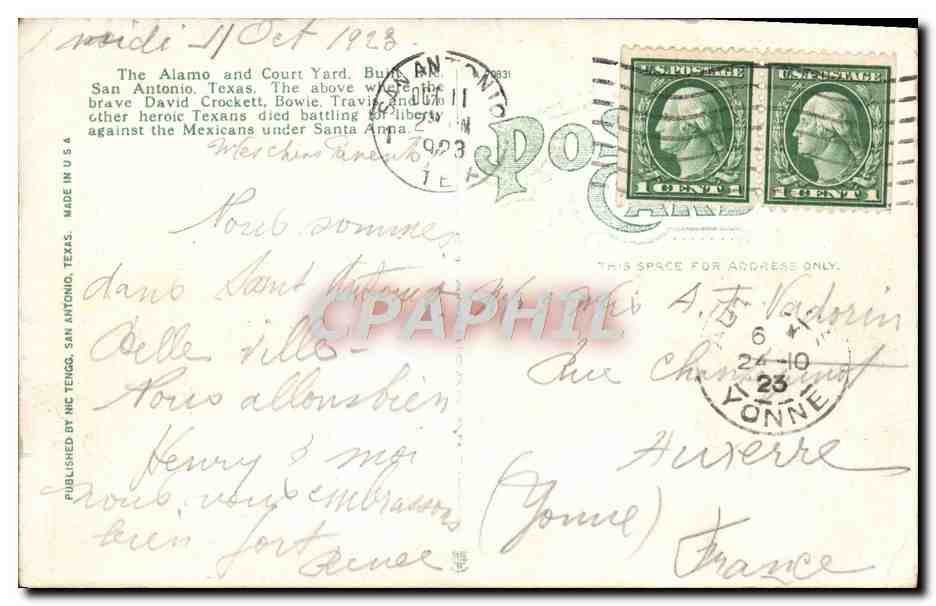 midi 11 Oct 1923
The Alamo and Court Yard, Built
San Antonio, Texas. The above where the
brave David Crockett, Bowie, Travis and
other heroic Texans died battling for liberty
against the Mexicans under Santa Anna.
Mes chers Parents
Nous sommes
dans Saint Antonio
Belle ville -
Nous allons bien
Henry & moi
nous vous embrassons
bien fort
Renée
PUBLISHED BY NIC TENGG, SAN ANTONIO, TEXAS. MADE IN U S A
SAN ANTONIO
OCT 11
1923
TEX
1
U.S. POSTAGE
1 CENT 1
U.S. POSTAGE
1 CENT 1
POST
CARD
THIS SPACE FOR ADDRESS ONLY.
A.
Rue
Auxerre
(Yonne)
France
6
24-10
23
YONNE
CPAPHIL